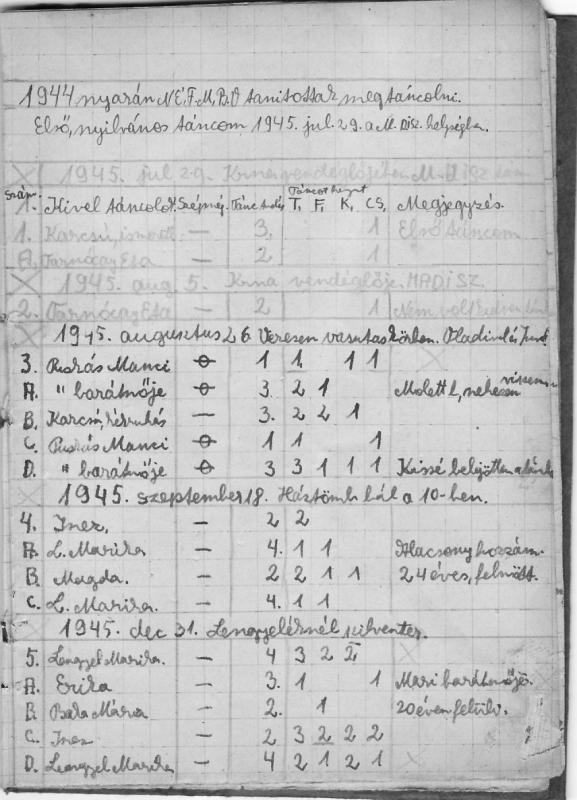 1944 nyarán N.É.F.M.B.O tanitottak megtáncolni.
Első, nyilvános táncom 1945. jul. 29. a M. DISZ. helységbe.
1945. jul 29. Krna vendéglőjében M.
Szám. Kivel táncolok. Szépség. Tánc tudás Táncot kezet T, F, K, CS, Megjegyzés.
1. Karcsú, – 3. 1 Első táncom
A. Tarnóczy Eta – 2 1
1945 aug 5. Krna vendéglője. MADISZ.
2. Tarnóczy Eta – 2 1 Nem volt
1945. augusztus 26 Veresen vasutas körben.
3. Puskás Manci 1 1 1 1
A. " barátnője 3. 2 1 Molett l, nehezen
B. Karcsú, – 3. 2 2 1
C. Puskás Manci 1 1 1
D. " barátnője 3 3 1 1 1 Kissé belejöttem
1945. szeptember 18. Háztömb bál a 10-ben.
4. Inez, – 2 2
A. L. Marika – 4. 1 1 Alacsony hozzám.
B. Magda. – 2 2 1 1 24 éves, felnőtt.
C. L. Marika. – 4. 1 1
1945. dec 31. Lengyeléknél szilveszter.
5. Lengyel Marika. – 4 3 2 2
A. Erika – 3. 1 1 Mari barátnője.
B. Mária – 2. 1 20 éven felüli.
C. Inez – 2 3 2 2 2
D. Lengyel Marika – 4 2 1 2 1